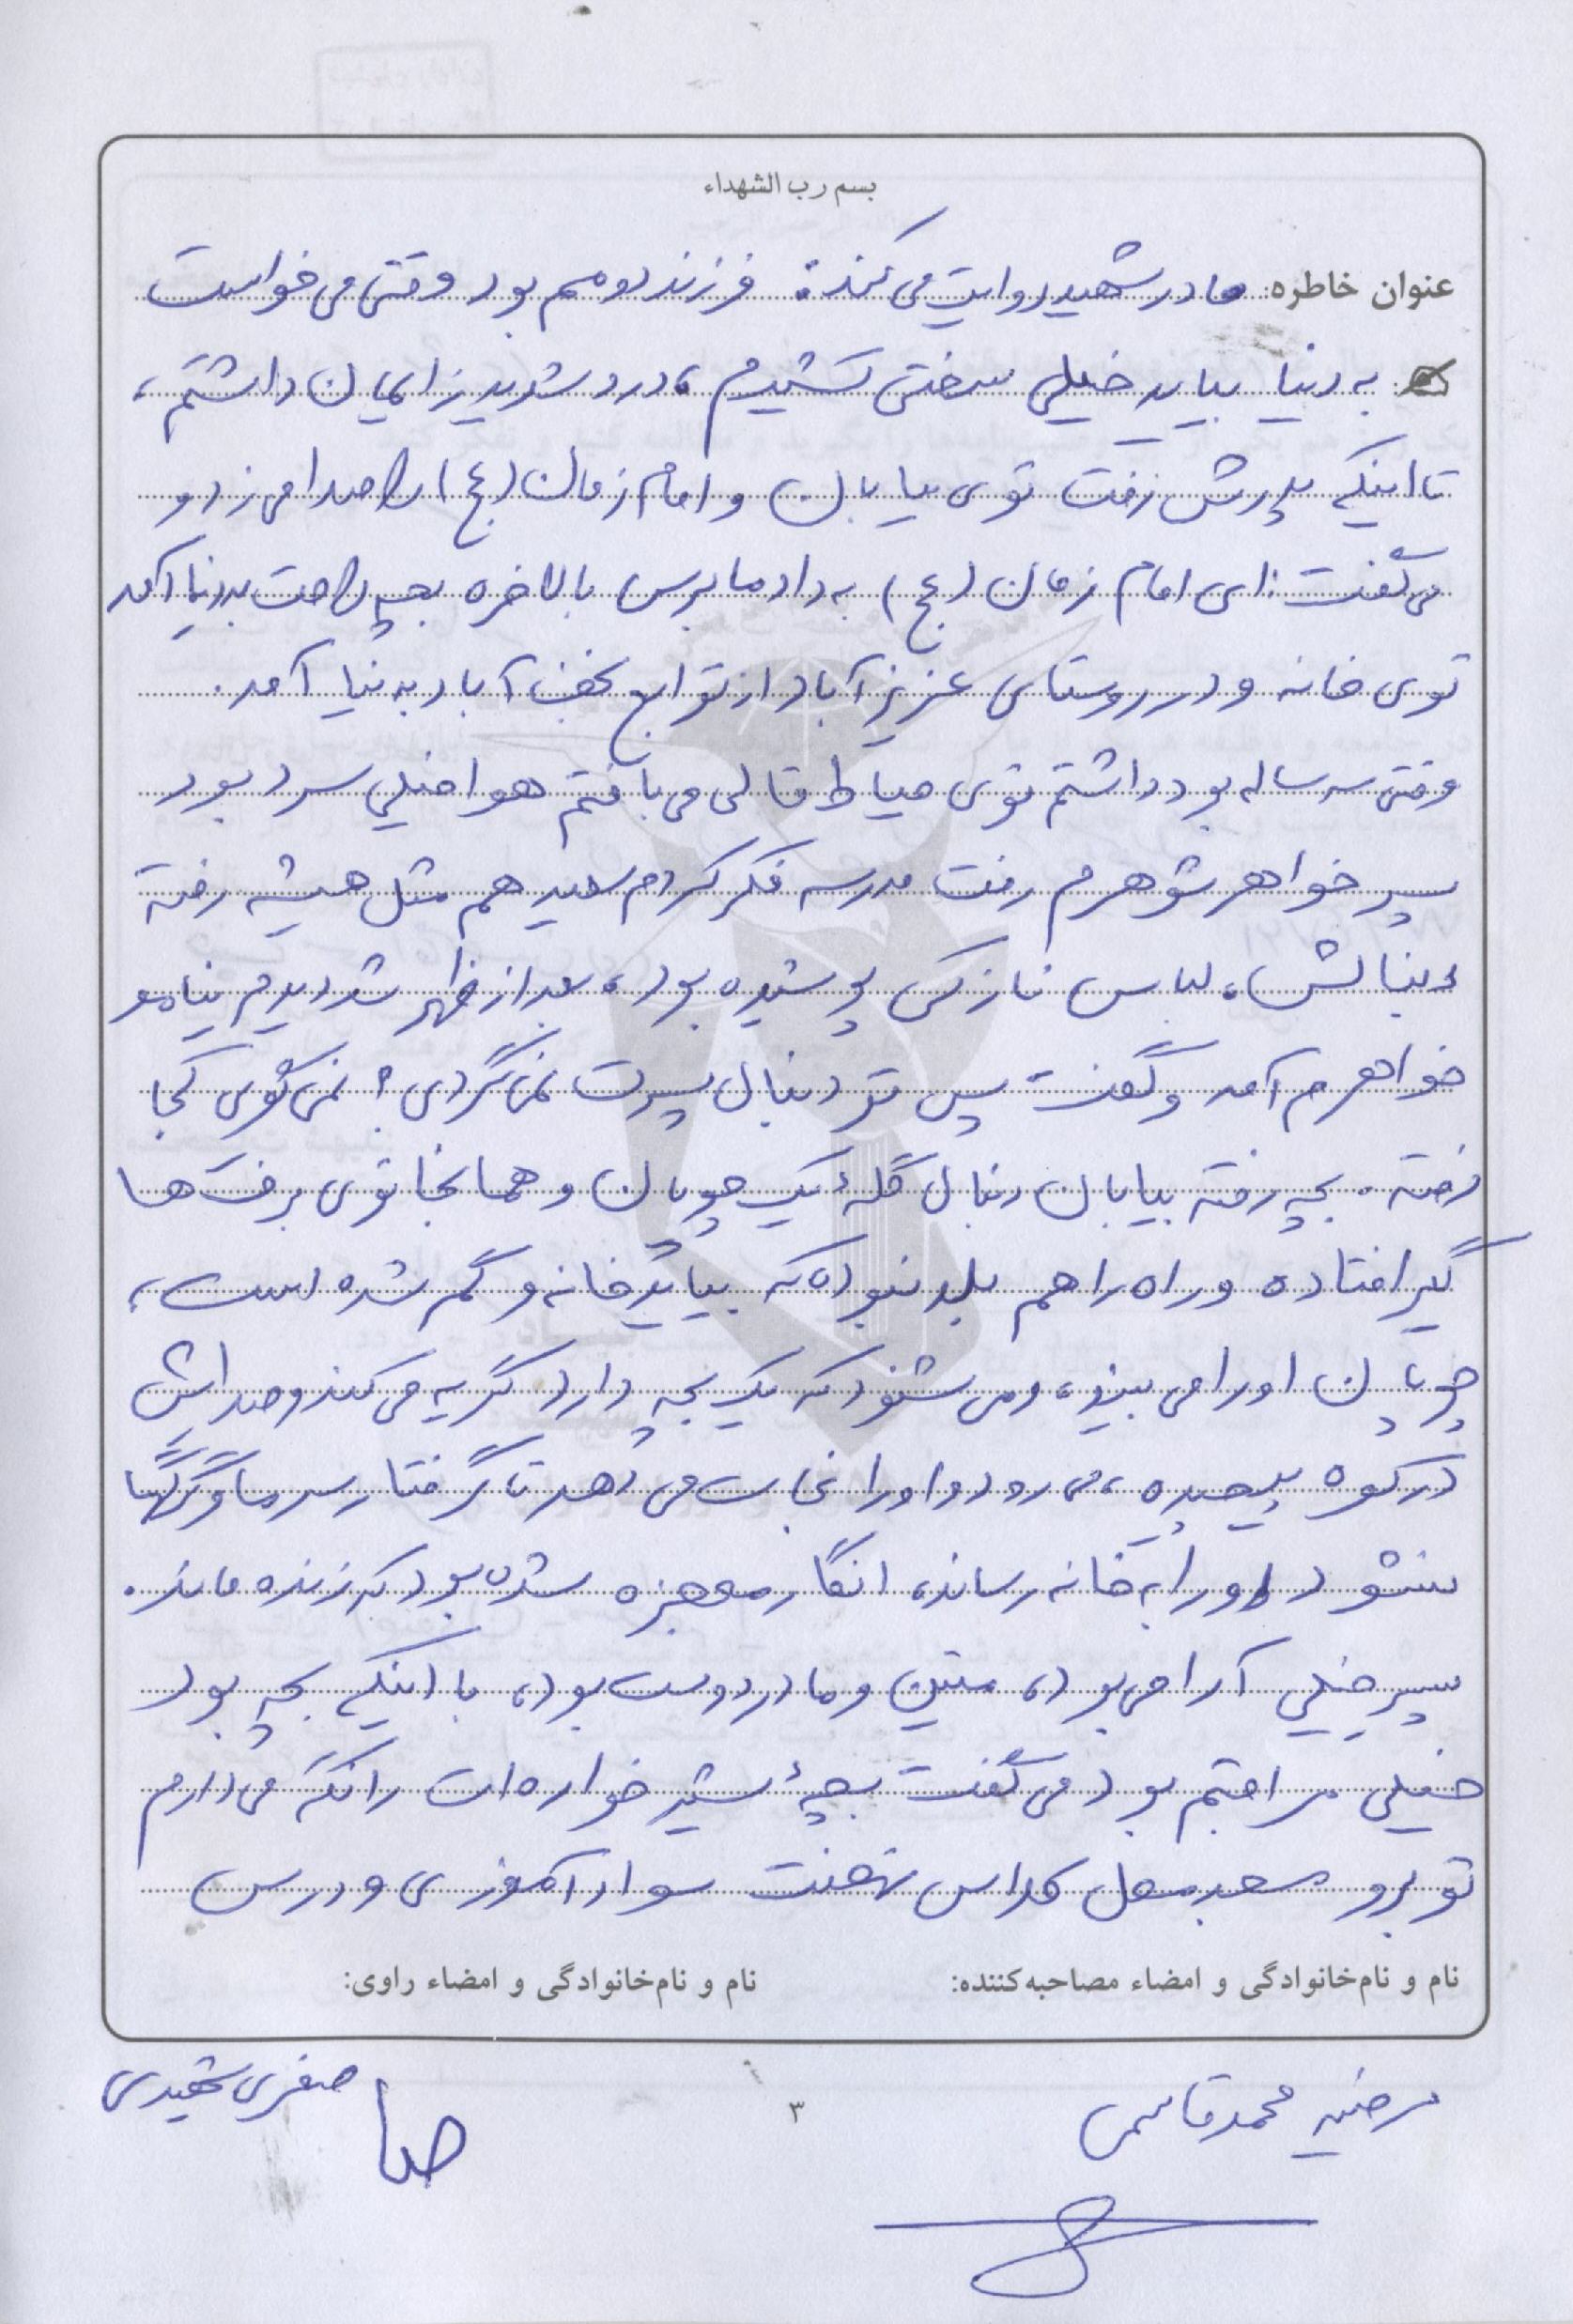 بسم رب الشهداء
عنوان خاطره: مادر شهید روایت می‌کند: فرزند دومم بود وقتی می‌خواست
به دنیا بیاید خیلی سختی کشیدم، درد شدید زایمان داشتم،
تا اینکه پدرش رفت توی بیابان و امام زمان (عج) را صدا می‌زد و
می‌گفت: ای امام زمان (عج) به داد ما برس بالاخره بچه راحت بدنیا آمد
توی خانه و در روستای عزیزآباد از توابع نجف آباد به نیا آمد.
وقتی سه ساله بود داشتم توی حیاط قالی می‌بافتم هوا خیلی سرد بود
پسر خواهر شوهرم رفت مدرسه فکر کردم سعید هم مثل همیشه رفته
دنبالش، لباس نازکی پوشیده بود، بعد از ظهر شد دیدم نیامد
خواهرم آمد و گفت پس تو دنبال پسرت نمی‌گردی؟ نمی‌گوی کجا
رفته. بچه رفته بیابان دنبال گلهٔ یک چوپان و همانجا توی برف‌ها
گیر افتاده و راه را هم بلد نبوده که بیاید خانه و گم شده است،
چوپان او را می‌بیند، و می‌شنود که یک بچه دارد گریه می‌کند و صدایش
در کوه پیچیده، می‌رود و او را نجات می‌دهد تا گرفتار سرما و گرگها
نشود و او را به خانه رساند، انگار معجزه شده بود که زنده ماند.
پسر خیلی آرامی بود، متین و مادر دوست بود، با اینکه بچه بود
خیلی مراقبم بود می‌گفت بچهٔ شیرخواره‌ات را نگه می‌دارم
تو برو مسجد محل کلاس نهضت سوادآموزی و درس
نام و نام‌خانوادگی و امضاء مصاحبه‌کننده: نام و نام‌خانوادگی و امضاء راوی:
مرضیه محمدقاسمی صغری شهیدی
۳